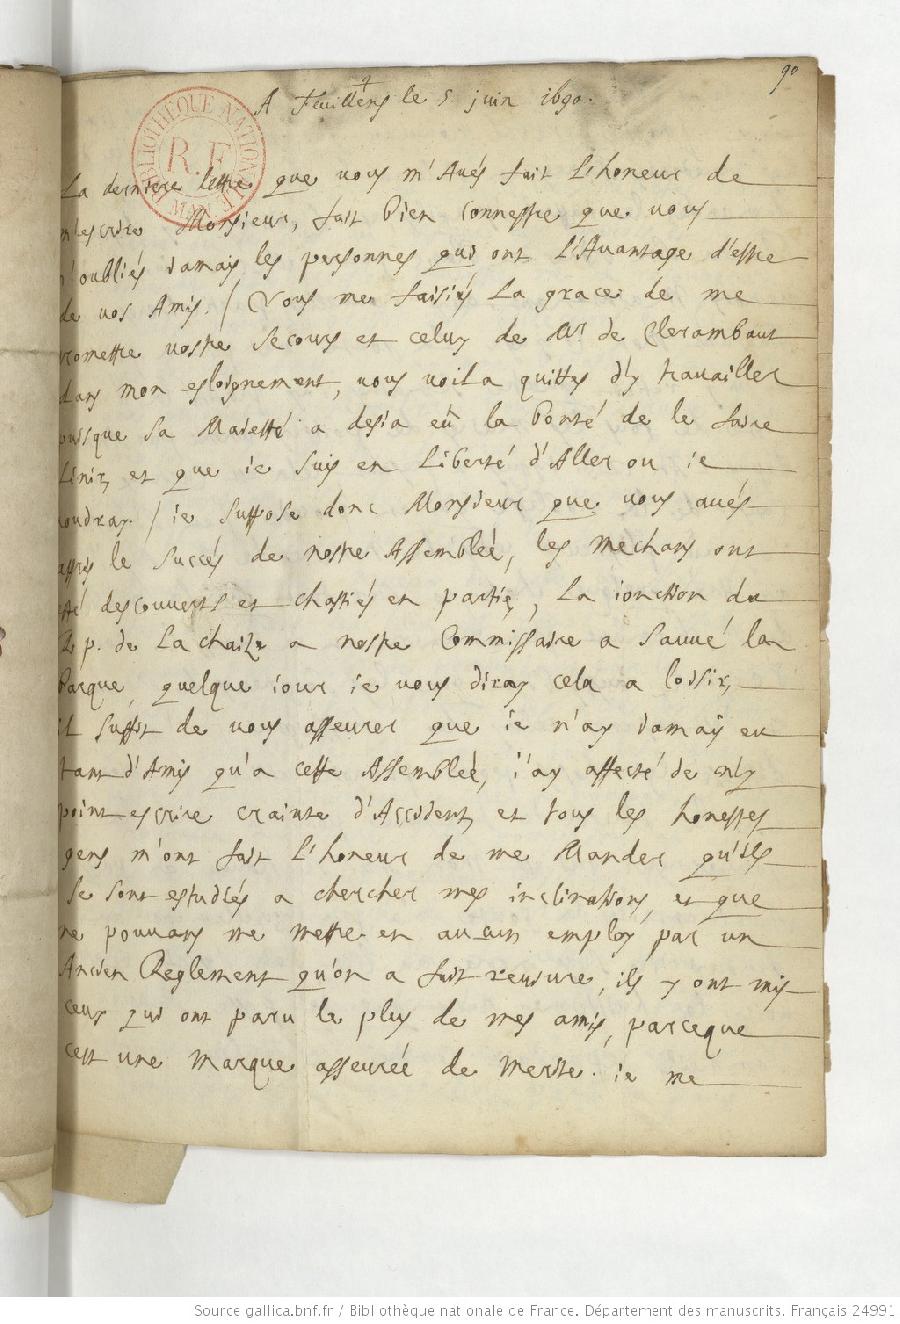 90
A Feuillens le 5 juin 1690.
La derniere lettre que vous m'Avés fait L'honeur de
m'escrire Monsieur, fait bien connestre que vous
n'oubliés Jamais les personnes qui ont L'Avantage d'estre
de vos Amis. / Vous me faisiés La grace de me
promettre vostre secours et celuy de Mr de Clerambaut
dans mon esloignement, vous voila quittes d'y travailler
puisque sa Maiesté a desia eü la bonté de le faire
finir, et que ie suis en Liberté d'Aller ou ie
voudray. / ie suppose donc Monsieur que vous avés
appris le succés de nostre Assemblée, les mechans ont
esté descouverts et chastiés en partie, La ionction du
R. p. de La chaize a nostre Commissaire a sauvé la
barque, quelque iour ie vous diray cela a loisir,
il suffit de vous asseurer que ie n'ay Jamais eu
tant d'Amis qu'a cette Assemblée, i'ay affecté de n'y
point escrire crainte d'Accident, et tous les honestes
gens m'ont fait L'honeur de me Mander qu'ils
se sont estudiés a chercher mes inclinations, et que
ne pouvans me mettre en aucun employ par un
Ancien Reglement qu'on a fait revivre, ils y ont mis
ceux qui ont paru le plus de mes amis, parceque
cest une marque asseurée de merite. ie me
BIBLIOTHÈQUE NATIONALE
R.F.
MAN
Source gallica.bnf.fr / Bibliothèque nationale de France. Département des manuscrits. Français 24991